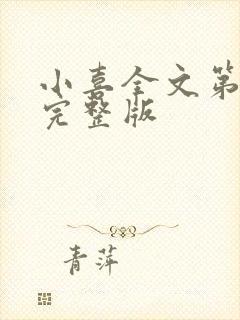 小喜全文第
完整版
青萍